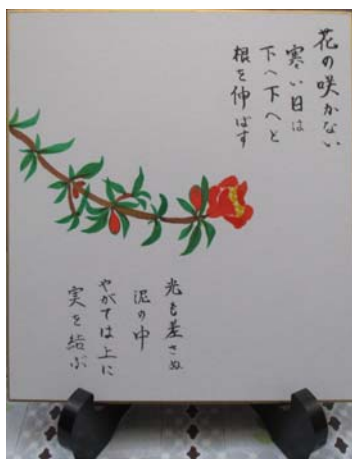 花の咲かない
寒い日は
下へ下へと
根を伸ばす
光も差さぬ
泥の中
やがては上に
実を結ぶ